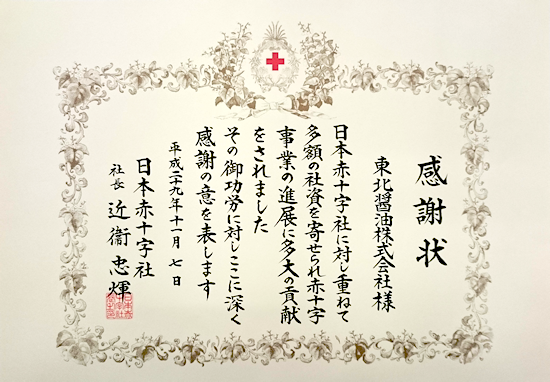 感謝状
東北醤油株式会社様
日本赤十字社に対し重ねて
多額の社資を寄せられ赤十字
事業の進展に多大の貢献
をされました
その御功労に対しここに深く
感謝の意を表します
平成二十九年十一月七日
日本赤十字社
社長 近衞忠煇